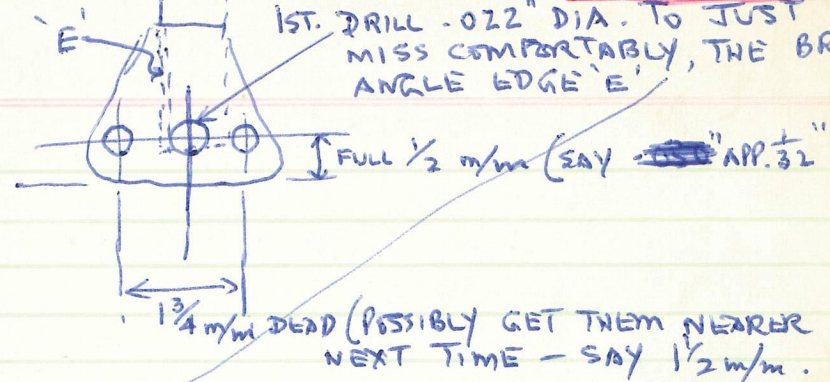 1ST. DRILL .022" DIA. TO JUST
MISS COMFORTABLY, THE BR
ANGLE EDGE 'E'
'E'
FULL 1/2 m/m (SAY " APP. 1/32"
1 3/4 m/m DEAD (POSSIBLY GET THEM NEARER
NEXT TIME – SAY 1 1/2 m/m.